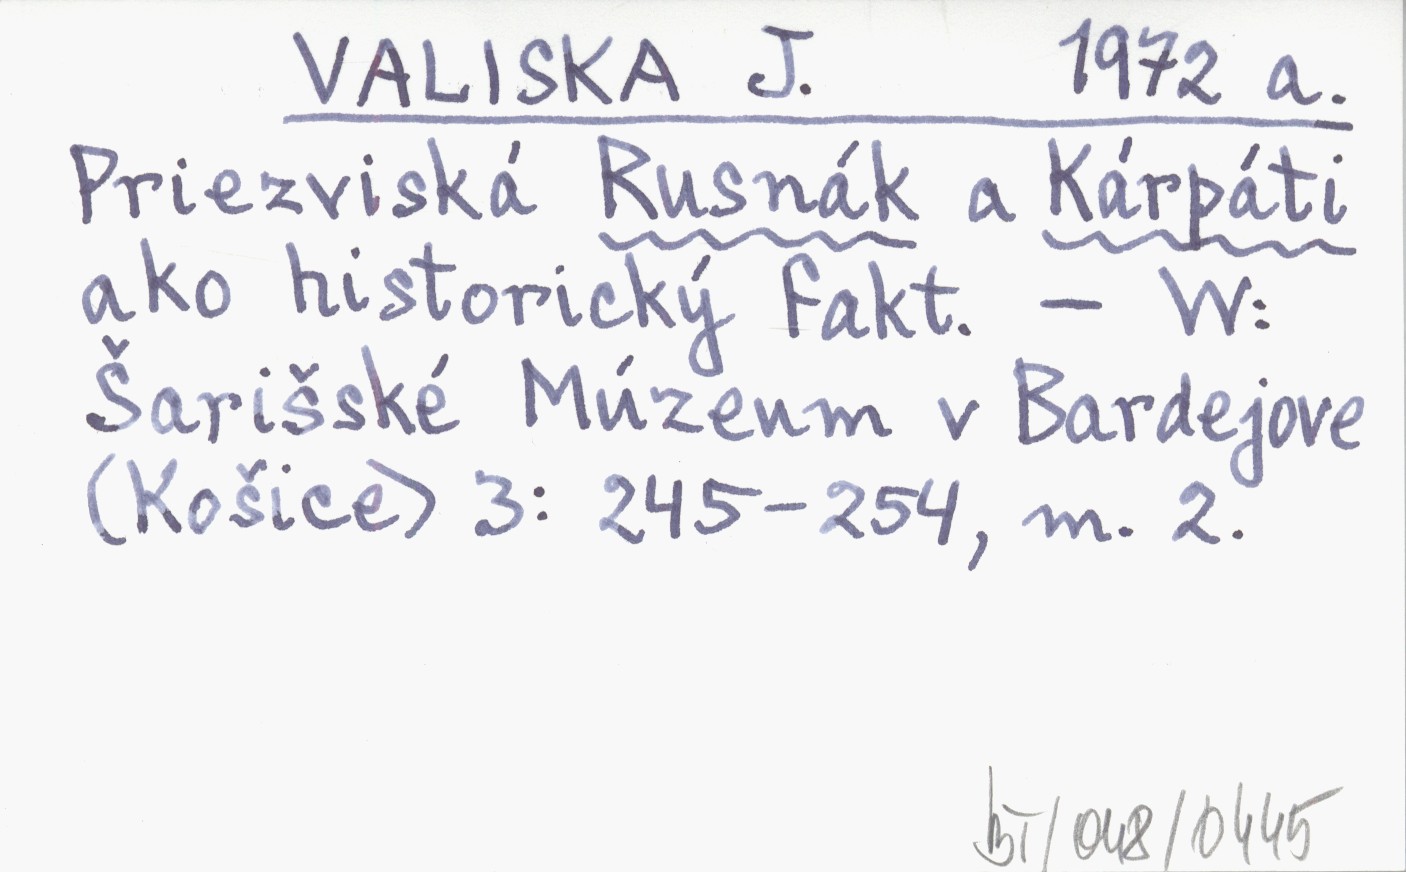 VALISKA J. 1972 a.
Priezviská Rusnák a Kárpáti
ako historický fakt. – W:
Šarišské Múzeum v Bardejove
(Košice) 3: 245–254, m. 2.
BI/048/0445